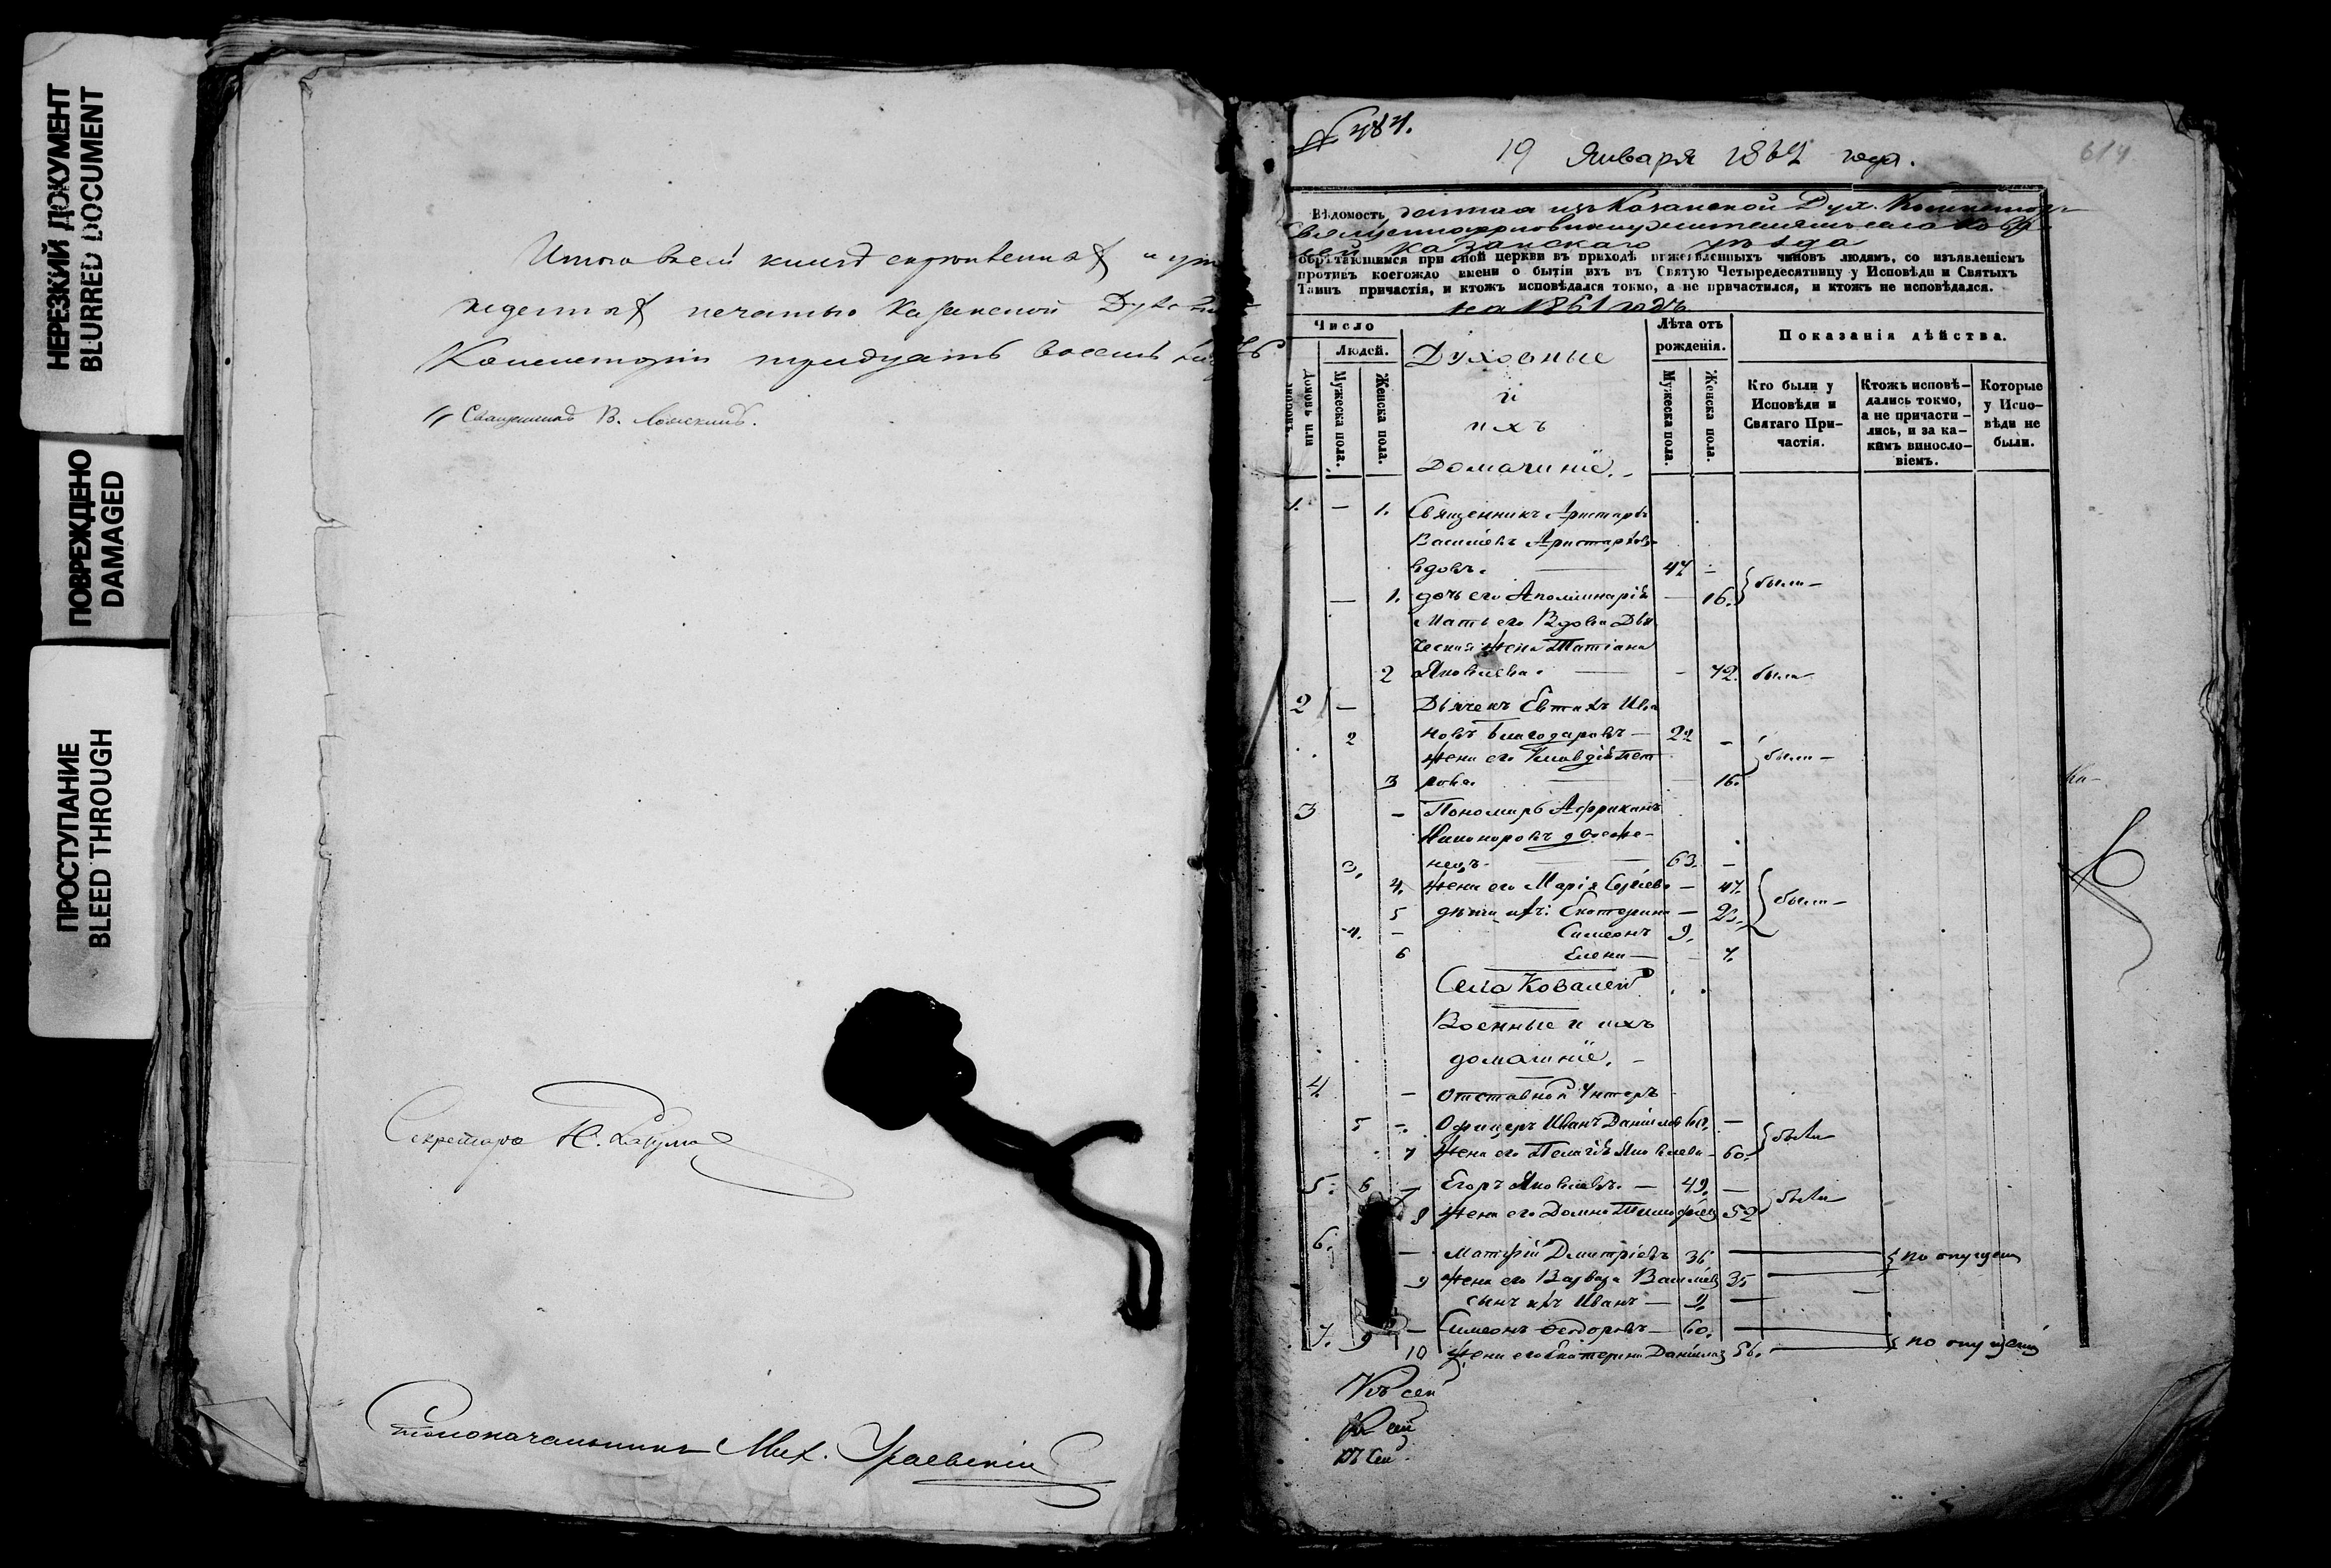 НЕРЕЗКИЙ ДОКУМЕНТ
BLURRED DOCUMENT
ПОВРЕЖДЕНО
DAMAGED
ПРОСТУПАНИЕ
BLEED THROUGH
Итого всей книге скрепленныхъ и
печатью Казанской
Консисторіи тридцать восемь
Священникъ В.
Секретарь Н.
Столоначальникъ Мих.
19 Января 1862 года.
614
Вѣдомость данная изъ Казанской Дух. Консисторіи
священноцерковнослужителямъ села
Казанскаго уѣзда
обрѣтающимся при оной церкви въ приходѣ нижеявленныхъ чиновъ людямъ, со изъявленіемъ
противъ коегождо имени о бытіи ихъ въ Святую Четыредесятницу у Исповѣди и Святыхъ
Таинъ причастія, и ктожъ исповѣдался токмо, а не причастился, и ктожъ не исповѣдался.
на 1861 годъ
Число
Людей.
Домовъ или дворовъ.
Мужеска пола.
Женска пола.
Духовные
и
ихъ
домашніе.
Лѣта отъ рожденія.
Мужеска пола.
Женска пола.
Показанія дѣйства.
Кто были у Исповѣди и Святаго Причастія.
Ктожъ исповѣдались токмо, а не причастились, и за какимъ винословіемъ.
Которые у Исповѣди не были.
1. — 1. Священникъ Аристархъ
Васильевъ Аристарховъ
вдовъ. — 47 —
— 1. дочь его Аполлинарія — 16. } были —
Мать его Вдова Дья
ческая жена Татіана
2 Яковлева. — — 72. были
2 — Дьячекъ Евтихъ Ива
2 новъ Благодаровъ — 22 —
жена его Клавдія Пет } были —
3 рова. — — 16.
3 — Пономарь Африканъ
Никоноровъ двоеже-
3. нецъ. — 63. —
4. жена его Марія Сергіева — 47.
5 дѣти ихъ: Екатерина — 23. } были —
4. — Симеонъ 9.
6 Елена — — 7.
Села Ковалей
Военные и ихъ
домашніе. —
4 — Отставной Унтеръ
5 — Офицеръ Иванъ Даниловъ —
7 жена его Пелагія Яковлева — 60. } были
5. 6 — Егоръ Яковлевъ. — 49. —
8 жена его Домна Тимофеева 52 } были
6. — Матфій Дмитріевъ 36 — } по опущен
9 жена его Варвара Васильева 35 —
сынъ ихъ Иванъ — 9. —
7. 9 — Симеонъ Феодоровъ — 60. —
10 жена его Екатерина Данилова 56. — } по опущенію
Къ сей
Къ сей
Къ сей